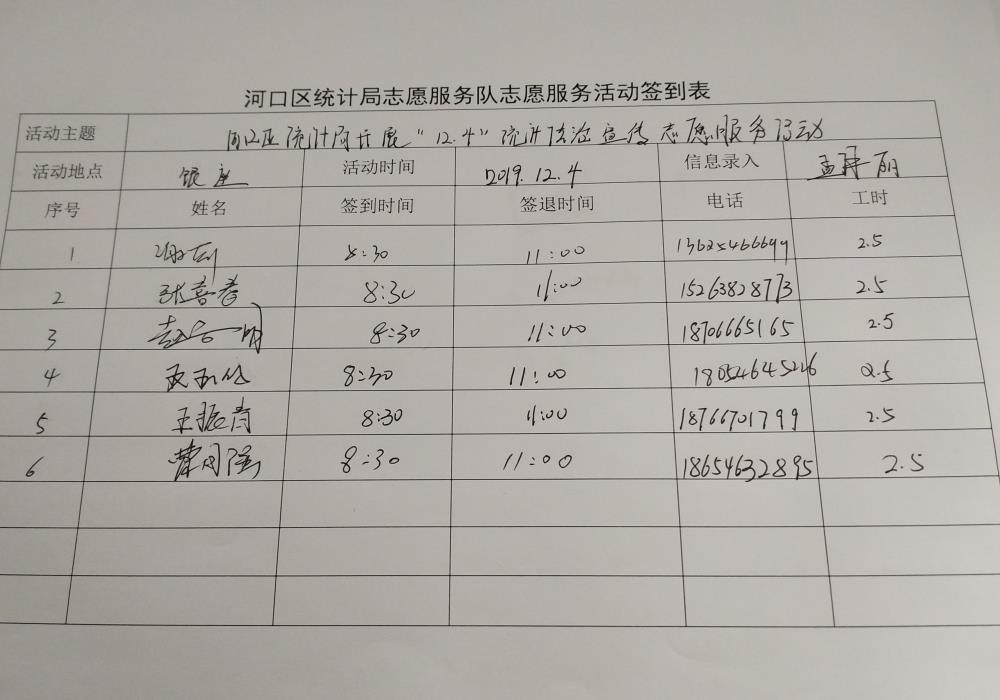 河口区统计局志愿服务队志愿服务活动签到表
活动主题 河口区统计局开展“12.4”统计法治宣传志愿服务活动
活动地点 银座 活动时间 2019.12.4 信息录入 孟 丽
序号 姓名 签到时间 签退时间 电话 工时
1 8:30 11:00 13625466699 2.5
2 张喜春 8:30 11:00 15263828773 2.5
3 8:30 11:00 18706665165 2.5
4 8:30 11:00 18054645226 2.5
5 王振青 8:30 11:00 18766701799 2.5
6 8:30 11:00 18654632895 2.5